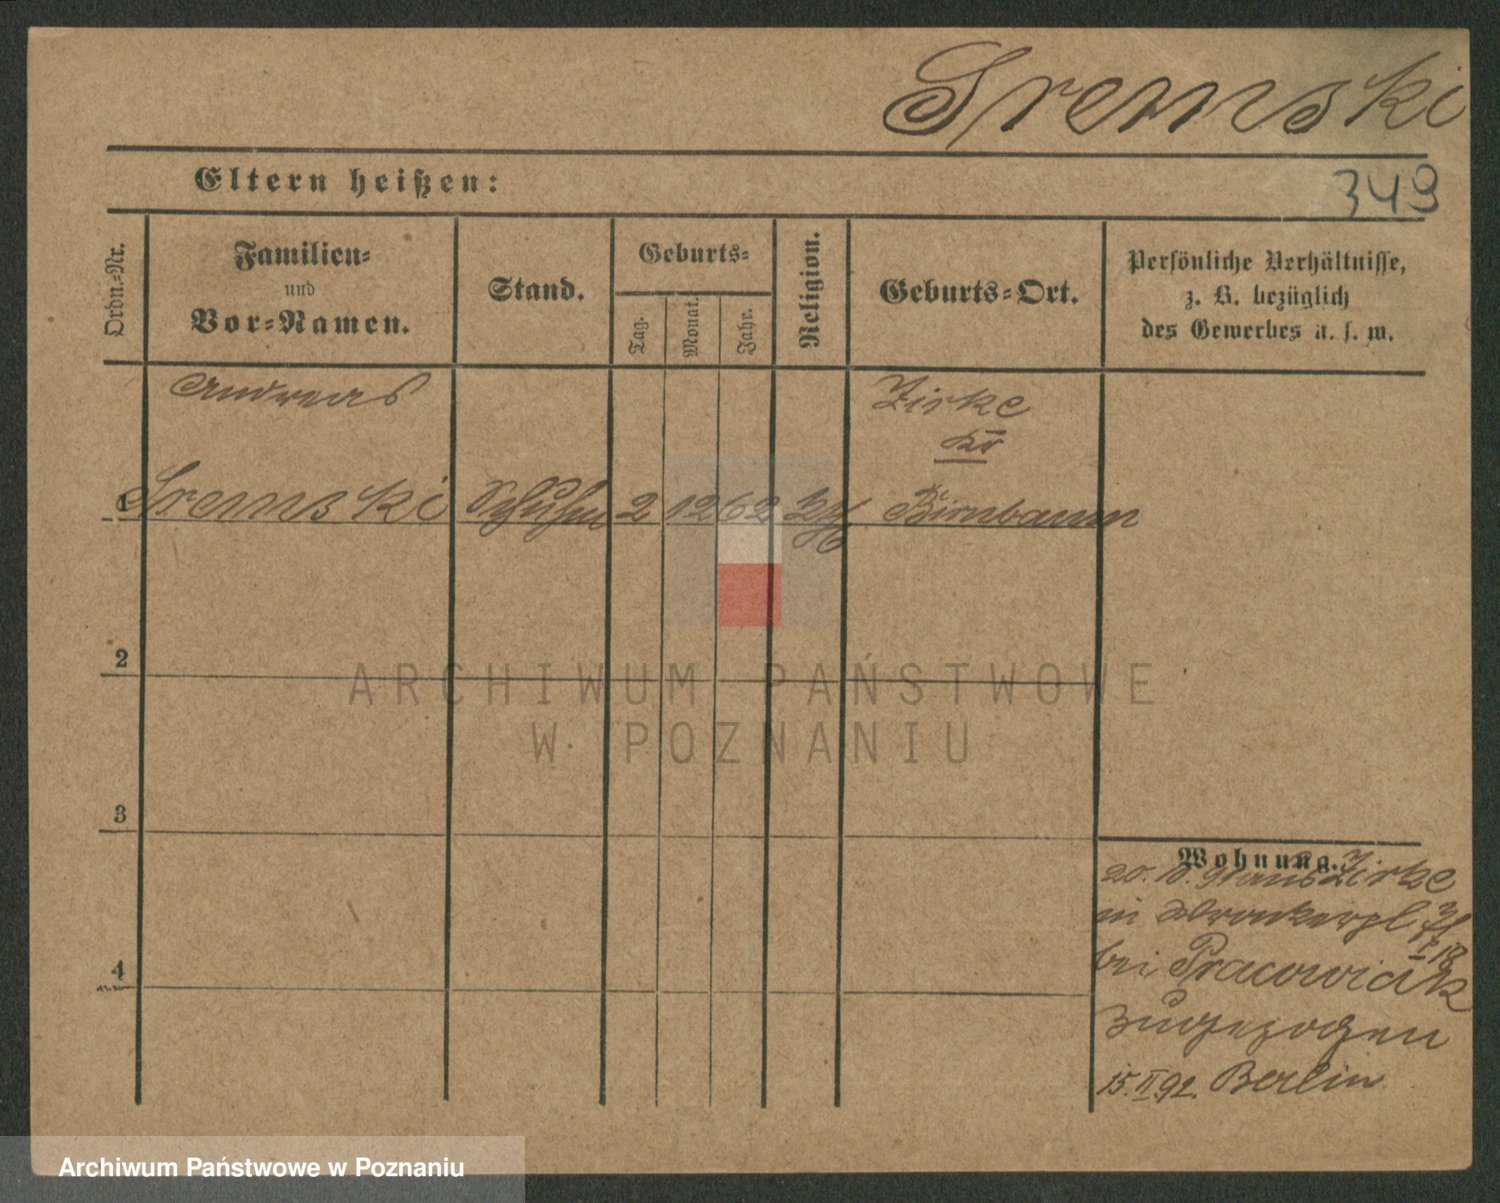 Sremski
349
Eltern heißen:
Ordn.-Nr.
Familien-
und
Vor-Namen.
Stand.
Geburts-
Tag.
Monat.
Jahr.
Religion.
Geburts-Ort.
Persönliche Verhältnisse,
z. B. bezüglich
des Gewerbes u. s. w.
Andreas
Zirke
Kr
1 Sremski 2 12 62 Birnbaum
2
3
4
ARCHIWUM PAŃSTWOWE
W POZNANIU
Wohnung.
20. 10. 91 aus Zirke
in Wronkerpl
bei Pracowiak
zugezogen
15. II 92. Berlin
Archiwum Państwowe w Poznaniu